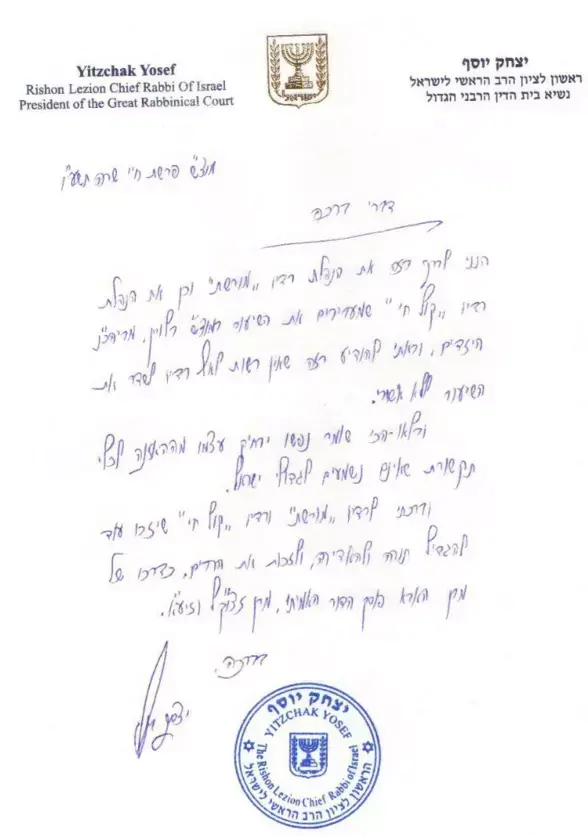 Yitzchak Yosef
Rishon Lezion Chief Rabbi Of Israel
President of the Great Rabbinical Court
יצחק יוסף
ראשון לציון הרב הראשי לישראל
נשיא בית הדין הרבני הגדול
ישראל
מוצ"ש פרשת חיי שרה תשע"ו
דברי ברכה
הנני לברך בזה את הנהלת רדיו "מורשת" וכן את הנהלת
רדיו "קול חי" שמעבירים את השיעור במוצ"ש
וראתי להודיע בזה שאין רשות לכל רדיו לשדר את
השיעור ללא אשורי.
שומר נפשו ירחיק עצמו מההאזנה לכלי
תקשורת שאינם נשמעים לגדולי ישראל.
וברכתי לרדיו "מורשת" ורדיו "קול חי" שיזכו עוד
להגדיל תורה ולהאדירה, ולזכות את הרבים, כדרכו של
מרן פוסק הדור האמיתי, מרן זצוק"ל וזיע"א.
בברכה,
יצחק יוסף
יצחק יוסף
YITZCHAK YOSEF
The Rishon Lezion Chief Rabbi of Israel
הראשון לציון הרב הראשי לישראל